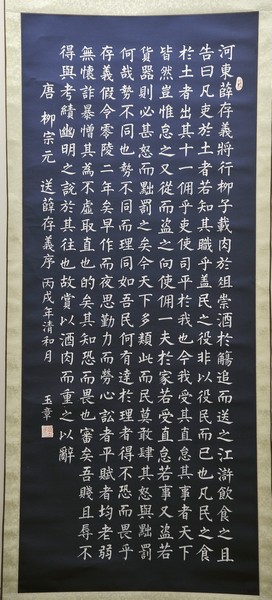 河東薛存義將行柳子載肉於俎崇酒於觴追而送之江滸飲食之且
告曰凡吏於土者若知其職乎蓋民之役非以役民而已也凡民之食
於土者出其十一佣乎吏使司平於我也今我受其直怠其事者天下
皆然豈惟怠之又從而盜之向使佣一夫於家若受直怠若事又盜若
貨器則必甚怒而黜罰之矣今天下多類此而民莫敢肆其怒與黜罰
何哉勢不同也勢不同而理同如吾民何有達於理者得不恐而畏乎
存義假令零陵二年矣早作而夜思勤力而勞心訟者平賦者均老弱
無懷詐暴憎其為不虛取直也的矣其知恐而畏也審矣吾賤且辱不
得與考績幽明之說於其往也故賞以酒肉而重之以辭
唐 柳宗元 送薛存義序 丙戌年清和月 玉章